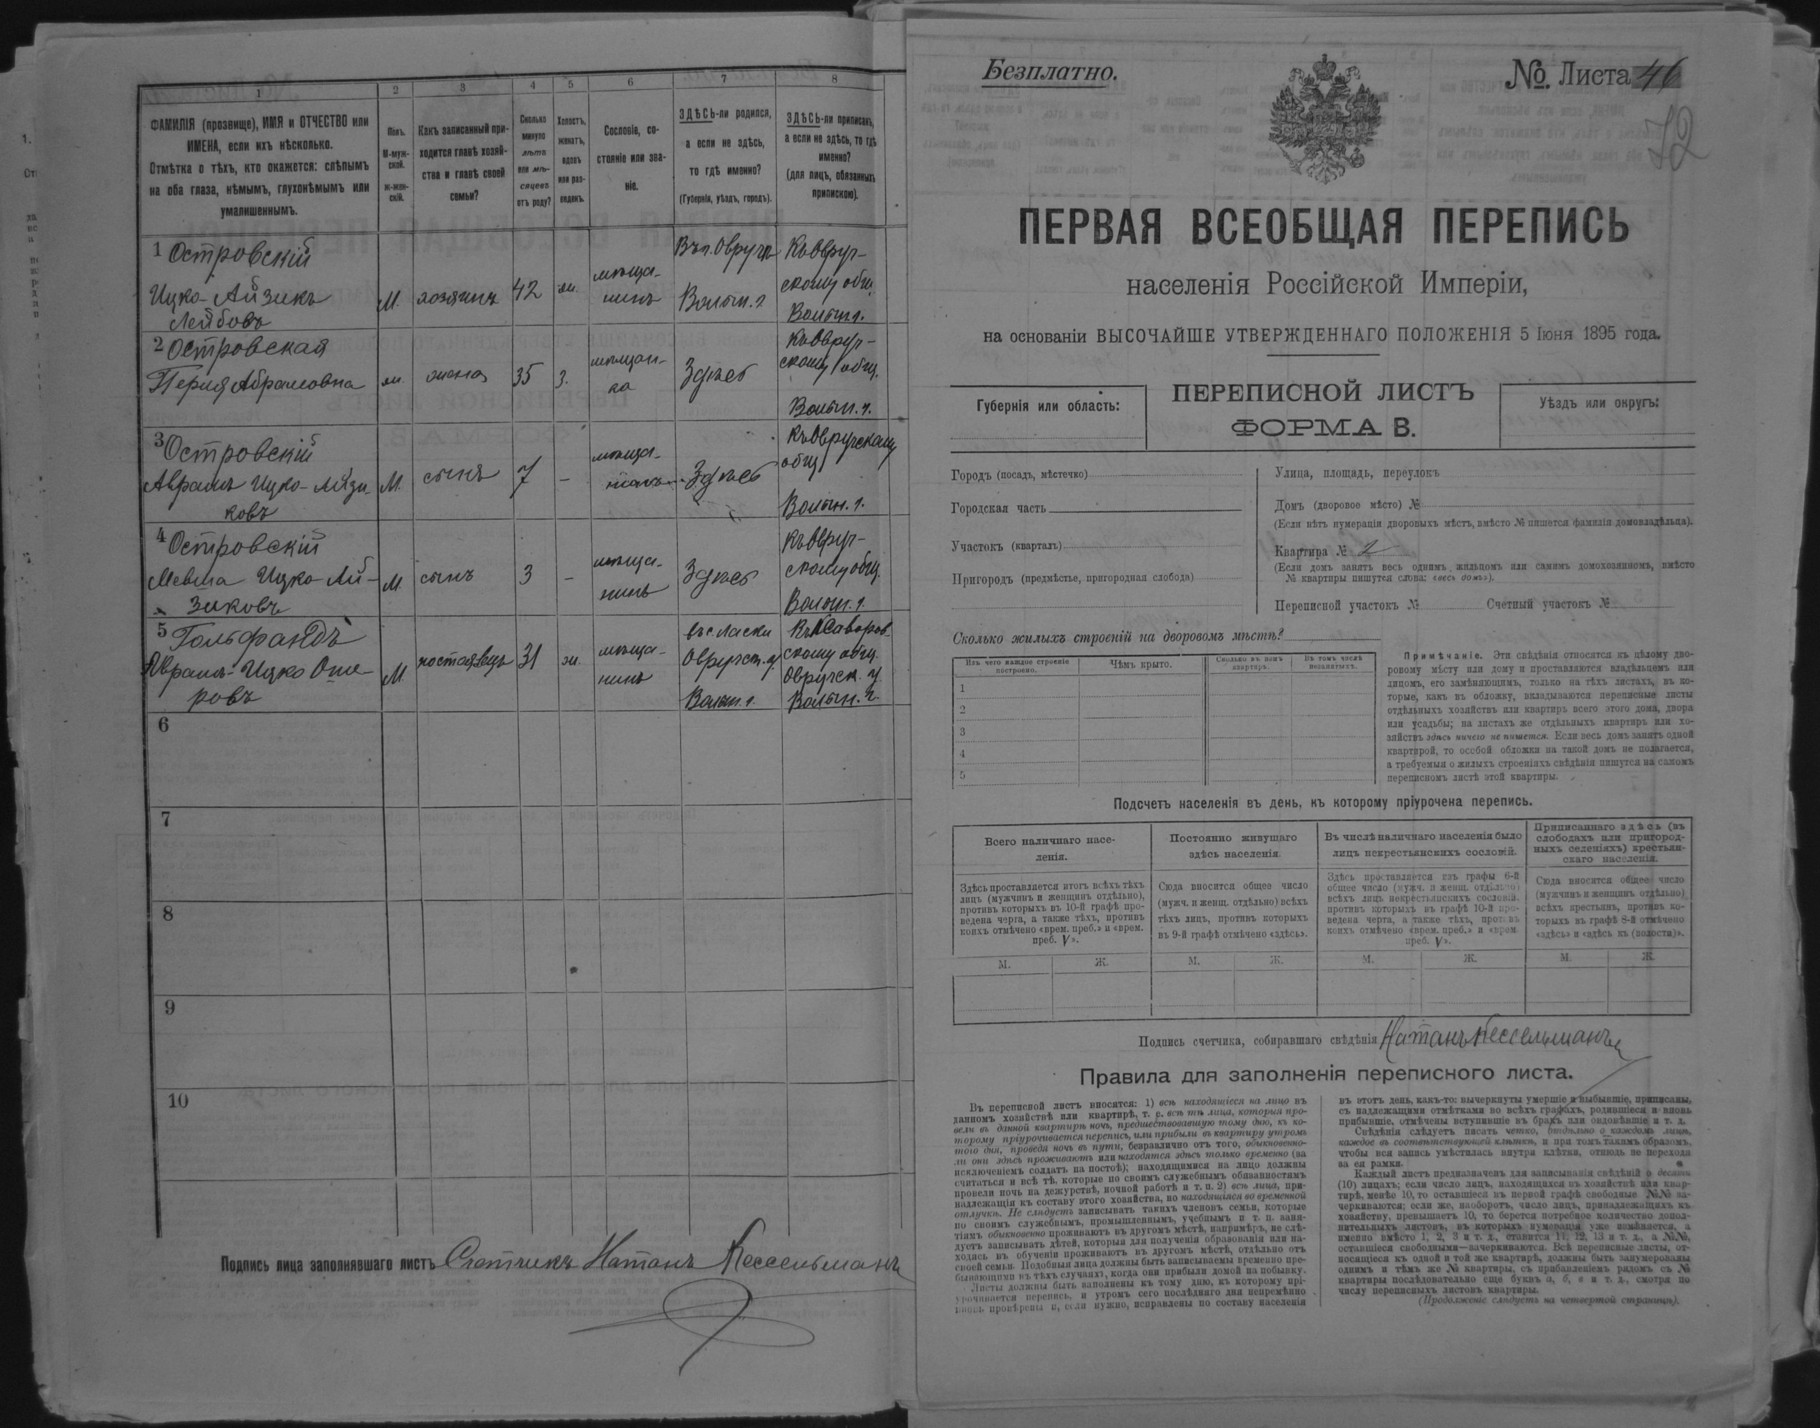 1
2
3
4
5
6
7
8
ФАМИЛІЯ (прозвище), ИМЯ и ОТЧЕСТВО или
ИМЕНА, если ихъ нѣсколько.
Отмѣтка о тѣхъ, кто окажется: слѣпымъ
на оба глаза, нѣмымъ, глухонѣмымъ или
умалишеннымъ.
Полъ.
М-муж-
ской.
ж-жен-
скій.
Какъ записанный при-
ходится главѣ хозяй-
ства и главѣ своей
семьи?
Сколько
минуло
лѣтъ
или мѣ-
сяцевъ
отъ роду?
Холостъ,
женатъ,
вдовъ
или раз-
веденъ.
Сословіе, со-
стояніе или зва-
ніе.
ЗДѢСЬ-ли родился,
а если не здѣсь,
то гдѣ именно?
(Губернія, уѣздъ, городъ).
ЗДѢСЬ-ли приписанъ,
а если не здѣсь, то гдѣ
именно?
(для лицъ, обязанныхъ
припискою).
1 Островскій
Ицко-Айзикъ
Лейбовъ
М.
хозяинъ
42
ж.
мѣща-
нинъ
Въ г. Овручѣ
Волын. г
Къ Овруч-
скому общ.
Волын. г.
2 Островская
Перля Абрамовна
ж.
жена
35
З.
мѣщан-
ка
Здѣсь
Къ Овруч-
скому общ.
Волын. г.
3 Островскій
Аврамъ Ицко-Айзи
ковъ
М.
сынъ
7
–
мѣща-
нинъ
Здѣсь
Къ Овручскому
общ
Волын. г.
4 Островскій
Ицко-Ай-
зиковъ
М.
сынъ
3
–
мѣща-
нинъ
Здѣсь
Къ Овруч-
скому общ.
Волын. г.
5 Гольфандъ
Аврамъ-Ицко
ровъ
М
31
ж.
мѣща-
нинъ
въ с. Ласки
Овручск. у
Волын. г.
скому общ.
Овручск. у.
Волын. г.
6
7
8
9
10
Подпись лица заполнявшаго листъ Счетчикъ Натанъ Кессельманъ
Безплатно.
№ Листа 46
ПЕРВАЯ ВСЕОБЩАЯ ПЕРЕПИСЬ
населенія Россійской Имперіи,
на основаніи ВЫСОЧАЙШЕ УТВЕРЖДЕННАГО ПОЛОЖЕНІЯ 5 Іюня 1895 года.
Губернія или область:
ПЕРЕПИСНОЙ ЛИСТЪ
ФОРМА В.
Уѣздъ или округъ:
Городъ (посадъ, мѣстечко)
Городская часть
Участокъ (кварталъ)
Пригородъ (предмѣстье, пригородная слобода)
Улица, площадь, переулокъ
Домъ (дворовое мѣсто) №
(Если нѣтъ нумераціи дворовыхъ мѣстъ, вмѣсто № пишется фамилія домовладѣльца).
Квартира № 2
(Если домъ занятъ весь однимъ жильцомъ или самимъ домохозяиномъ, вмѣсто
№ квартиры пишутся слова: «весь домъ»).
Переписной участокъ № Счетный участокъ №
Сколько жилыхъ строеній на дворовомъ мѣстѣ?
Изъ чего каждое строеніе
построено.
Чѣмъ крыто.
Сколько въ немъ
квартиръ.
Въ томъ числѣ
незанятыхъ.
1
2
3
4
5
Примѣчаніе. Эти свѣдѣнія относятся къ цѣлому дво-
ровому мѣсту или дому и проставляются владѣльцемъ или
лицомъ, его замѣняющимъ, только на тѣхъ листахъ, въ ко-
торые, какъ въ обложку, вкладываются переписные листы
отдѣльныхъ хозяйствъ или квартиръ всего этого дома, двора
или усадьбы; на листахъ же отдѣльныхъ квартиръ или хо-
зяйствъ здѣсь ничего не пишется. Если весь домъ занятъ одной
квартирой, то особой обложки на такой домъ не полагается,
а требуемыя о жилыхъ строеніяхъ свѣдѣнія пишутся на самомъ
переписномъ листѣ этой квартиры.
Подсчетъ населенія въ день, къ которому пріурочена перепись.
Всего наличнаго насе-
ленія.
Постоянно живущаго
здѣсь населенія.
Въ числѣ наличнаго населенія было
лицъ некрестьянскихъ сословій.
Приписаннаго здѣсь (въ
слободахъ или пригород-
ныхъ селеніяхъ) крестьян-
скаго населенія.
Здѣсь проставляется итогъ всѣхъ тѣхъ
лицъ (мужчинъ и женщинъ отдѣльно),
противъ которыхъ въ 10-й графѣ про-
ведена черта, а также тѣхъ, противъ
коихъ отмѣчено «врем. преб.» и «врем.
преб. V».
Сюда вносится общее число
(мужч. и женщ. отдѣльно) всѣхъ
тѣхъ лицъ, противъ которыхъ
въ 9-й графѣ отмѣчено «здѣсь».
Здѣсь проставляется изъ графы 6-й
общее число (мужч. и женщ. отдѣльно)
всѣхъ лицъ некрестьянскихъ сословій,
противъ которыхъ въ графѣ 10-й про-
ведена черта, а также тѣхъ, противъ
коихъ отмѣчено «врем. преб.» и «врем.
преб. V».
Сюда вносится общее число
(мужчинъ и женщинъ отдѣльно)
всѣхъ крестьянъ, противъ ко-
торыхъ въ графѣ 8-й отмѣчено
«здѣсь» и «здѣсь къ (волости)».
М. Ж. М. Ж. М. Ж. М. Ж.
Подпись счетчика, собиравшаго свѣдѣнія Натанъ Кессельманъ
Правила для заполненія переписного листа.
Въ переписной листъ вносятся: 1) всѣ находящіеся на лицо въ
данномъ хозяйствѣ или квартирѣ, т. е. всѣ тѣ лица, которыя про-
вели въ данной квартирѣ ночь, предшествовавшую тому дню, къ ко-
торому пріурочивается перепись, или прибыли въ квартиру утромъ
того дня, проведя ночь въ пути, безразлично отъ того, обыкновенно-
ли они здѣсь проживаютъ или находятся здѣсь только временно (за
исключеніемъ солдатъ на постоѣ); находящимися на лицо должны
считаться и всѣ тѣ, которые по своимъ служебнымъ обязанностямъ
провели ночь на дежурствѣ, ночной работѣ и т. п. 2) всѣ лица, при-
надлежащія къ составу этого хозяйства, но находящіяся во временной
отлучкѣ. Не слѣдуетъ записывать такихъ членовъ семьи, которые
по своимъ служебнымъ, промышленнымъ, учебнымъ и т. п. заня-
тіямъ обыкновенно проживаютъ въ другомъ мѣстѣ, напримѣръ, не слѣ-
дуетъ записывать дѣтей, которыя для полученія образованія или на-
ходясь въ обученіи проживаютъ въ другомъ мѣстѣ, отдѣльно отъ
своей семьи. Подобныя лица должны быть записываемы временно пре-
бывающими въ тѣхъ случаяхъ, когда они прибыли домой на побывку.
Листы должны быть заполнены къ тому дню, къ которому прі-
урочивается перепись, и утромъ сего послѣдняго дня непремѣнно
вновь провѣрены и, если нужно, исправлены по составу населенія
въ этотъ день, какъ-то: вычеркнуты умершіе и выбывшіе, приписаны,
съ надлежащими отмѣтками во всѣхъ графахъ, родившіеся и вновь
прибывшіе, отмѣчены вступившіе въ бракъ или овдовѣвшіе и т. д.
Свѣдѣнія слѣдуетъ писать четко, отдѣльно о каждомъ лицѣ,
каждое въ соответствующей клѣткѣ, и при томъ такимъ образомъ,
чтобы вся запись умѣстилась внутри клѣтки, отнюдь не переходя
за ея рамки.
Каждый листъ предназначенъ для записыванія свѣдѣній о десяти
(10) лицахъ; если число лицъ, находящихся въ хозяйствѣ или квар-
тирѣ, менѣе 10, то оставшіеся въ первой графѣ свободные №№ за-
черкиваются; если же, наоборотъ, число лицъ, принадлежащихъ къ
хозяйству, превышаетъ 10, то берется потребное количество допол-
нительныхъ листовъ, въ которыхъ нумерація уже измѣняется, а
именно вмѣсто 1, 2, 3 и т. д., ставится 11, 12, 13 и т. д., а №№,
оставшіеся свободными—зачеркиваются. Всѣ переписные листы, от-
носящіеся къ одной и той же квартирѣ, должны быть занумерованы
однимъ и тѣмъ же № квартиры, съ прибавленіемъ рядомъ съ №
квартиры послѣдовательно еще буквъ а, б, в и т. д., смотря по
числу переписныхъ листовъ квартиры.
(Продолженіе слѣдуетъ на четвертой страницѣ).